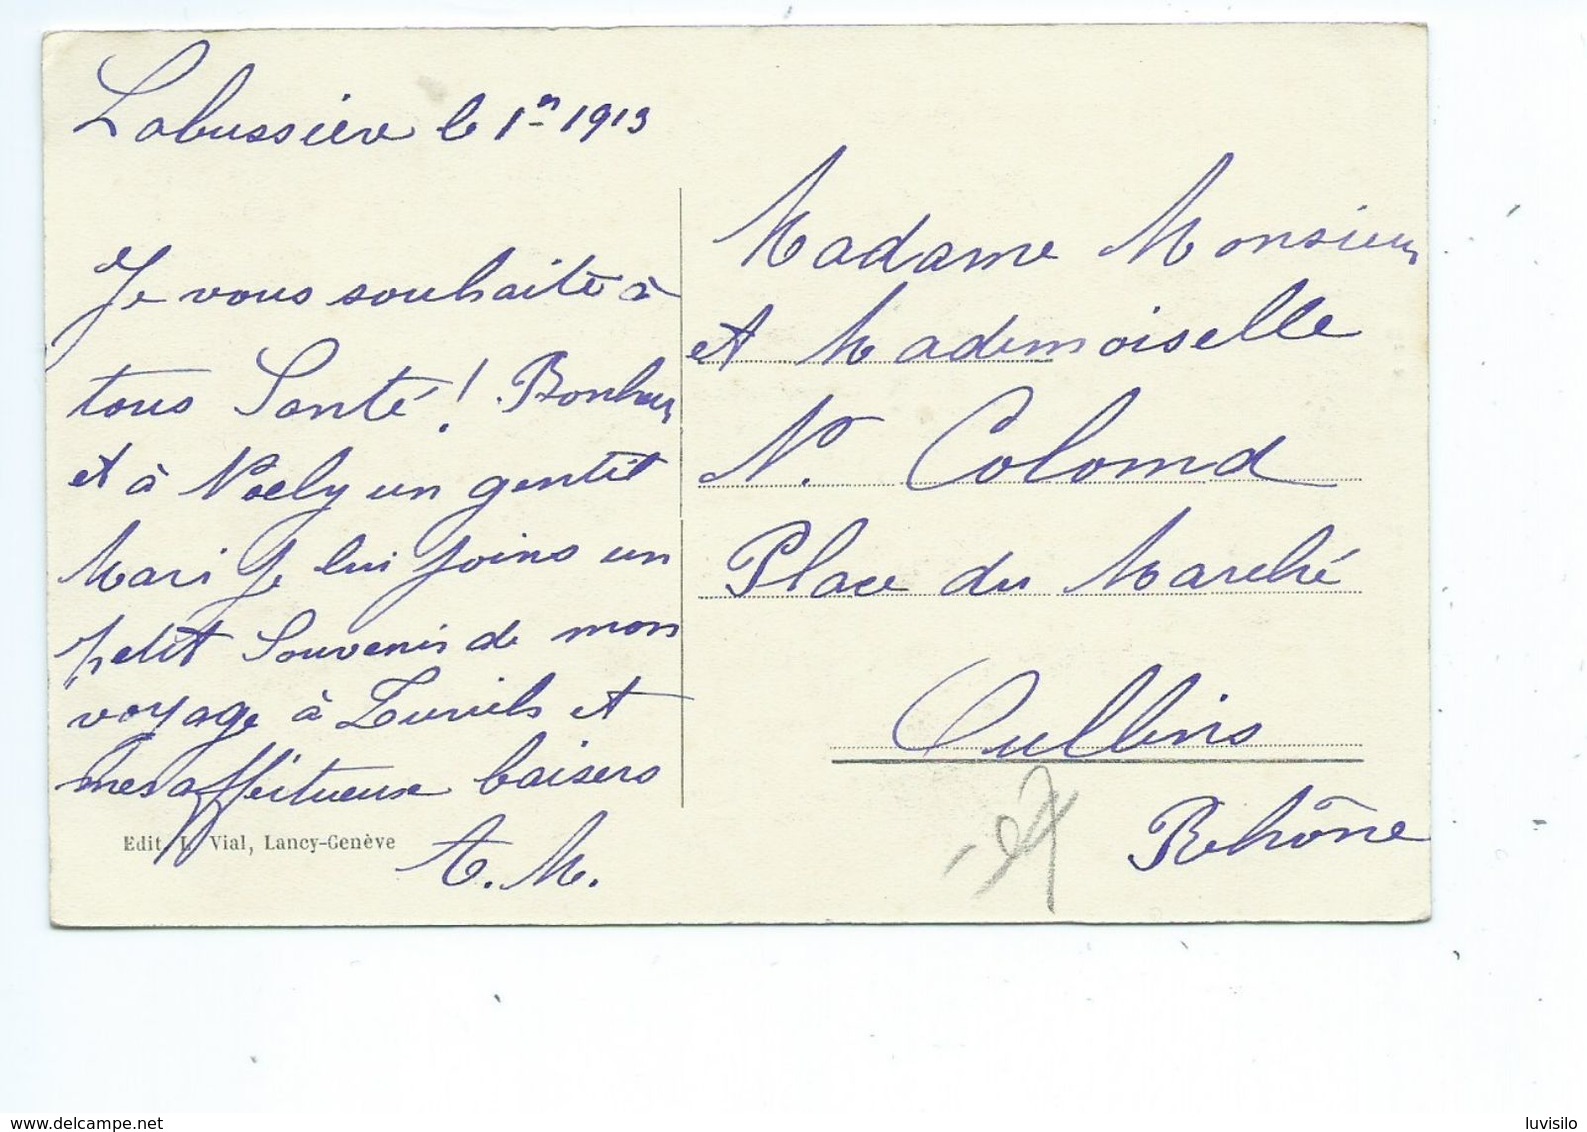 Labussière le 1er 1913
Je vous souhaite à
tous Santé! Bonheur
et à Noely un gentil
Mari je lui joins un
petit Souvenir de mon
voyage à et
mes affectueux baisers
A. M.
Edit. L. Vial, Lancy-Genève
Madame Monsieur
et Mademoiselle
N. Colomd
Place du Marché
Oullins
Rhône
www.delcampe.net
luvisilo